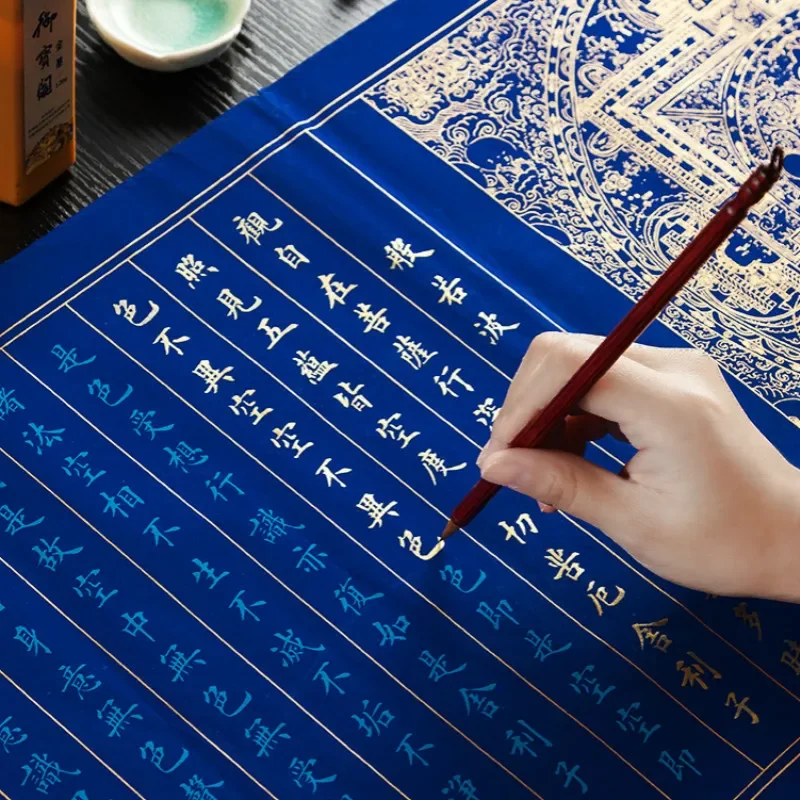 御寶閣
般若波
觀自在菩薩行深多時
照見五蘊皆空度切苦厄舍利子
色不異空空不異色色即是空空即
是色受想行識亦復如是舍利子
諸法空相不生不滅不垢不淨
是故空中無色無受
身意無色聲
意識